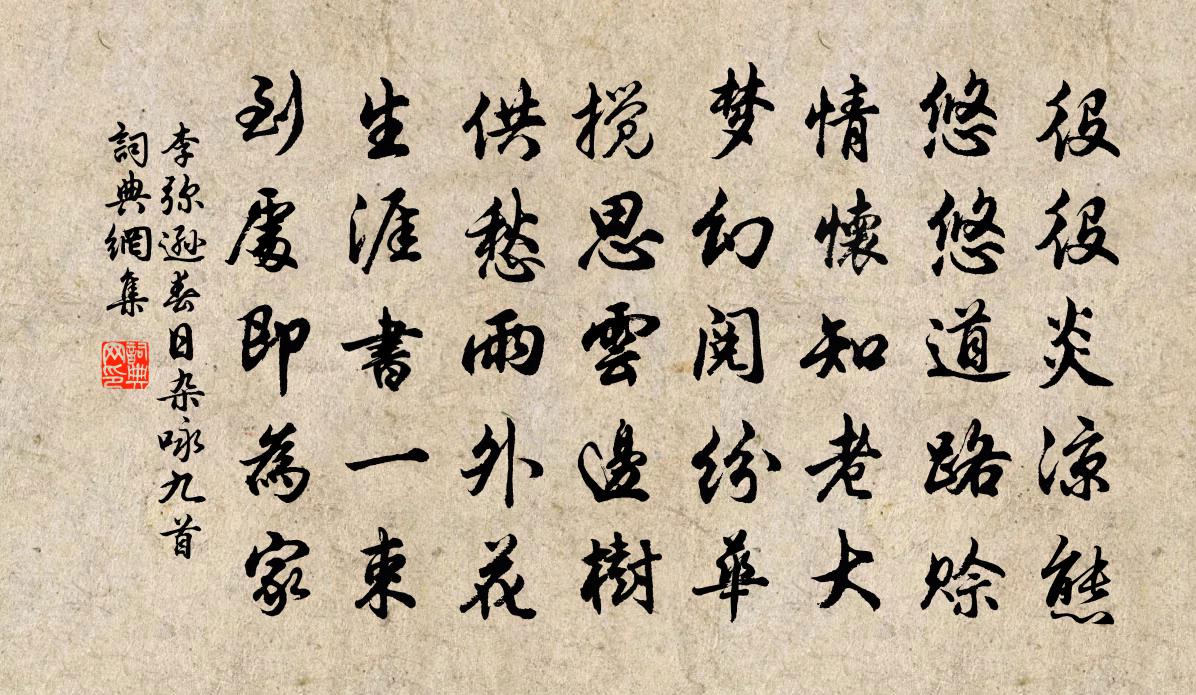 役役炎涼態
悠悠道路賒
情懷知老大
梦幻閱紛華
搅思雲邊樹
供愁雨外花
生涯書一束
到處即為家
李弥遜春日杂咏九首
詞典網集
詞典网印